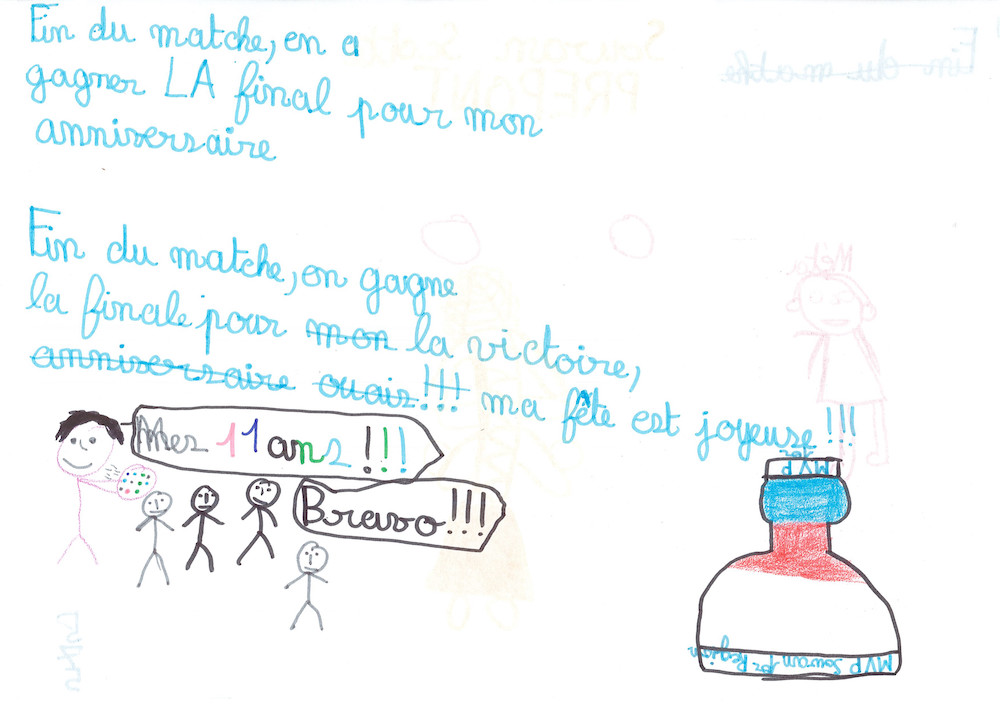 Fin du matche, en a
gagner LA final pour mon
anniversaire
Fin du matche, en gagne
la finale pour mon la victoire,
anniversaire ouais!!! ma fête est joyeuse !!!
Mes 11 ans !!!
Bravo!!!
MVP 1er
MVP Souvran 1er Region